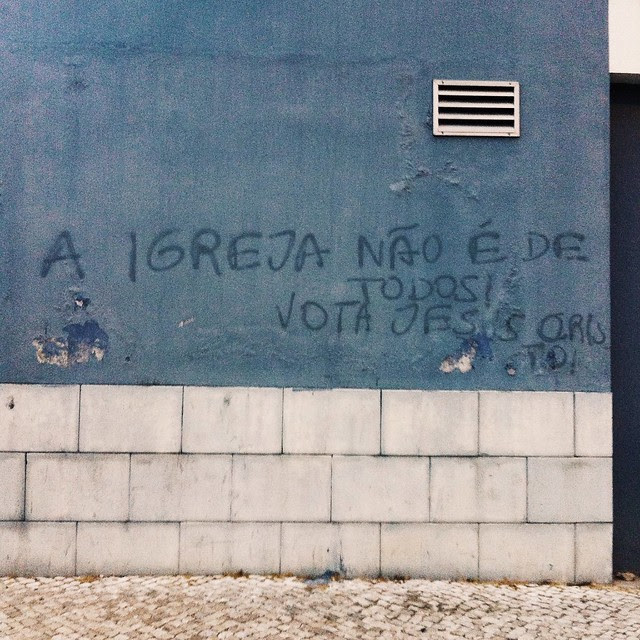 A IGREJA NÃO É DE
TODOS!
VOTA JESUS CRIS
TO!